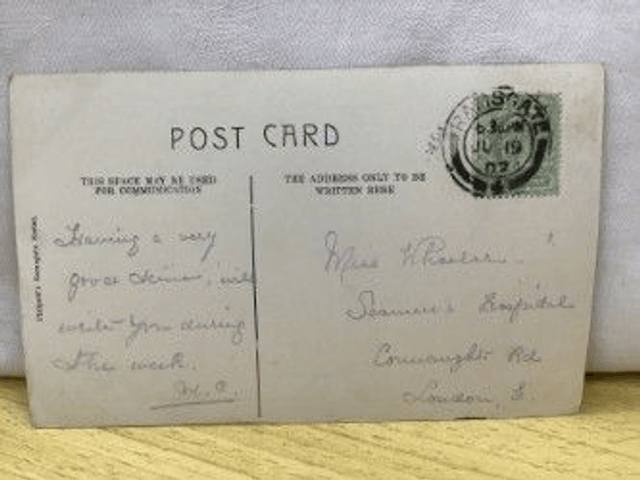 POST CARD
THIS SPACE MAY BE USED
FOR COMMUNICATION
THE ADDRESS ONLY TO BE
WRITTEN HERE
RAMSGATE
JU 19
07
Having a very
good time, will
write you during
the week.
Miss
Seamen's Hospital
Connaught Rd
London, E.